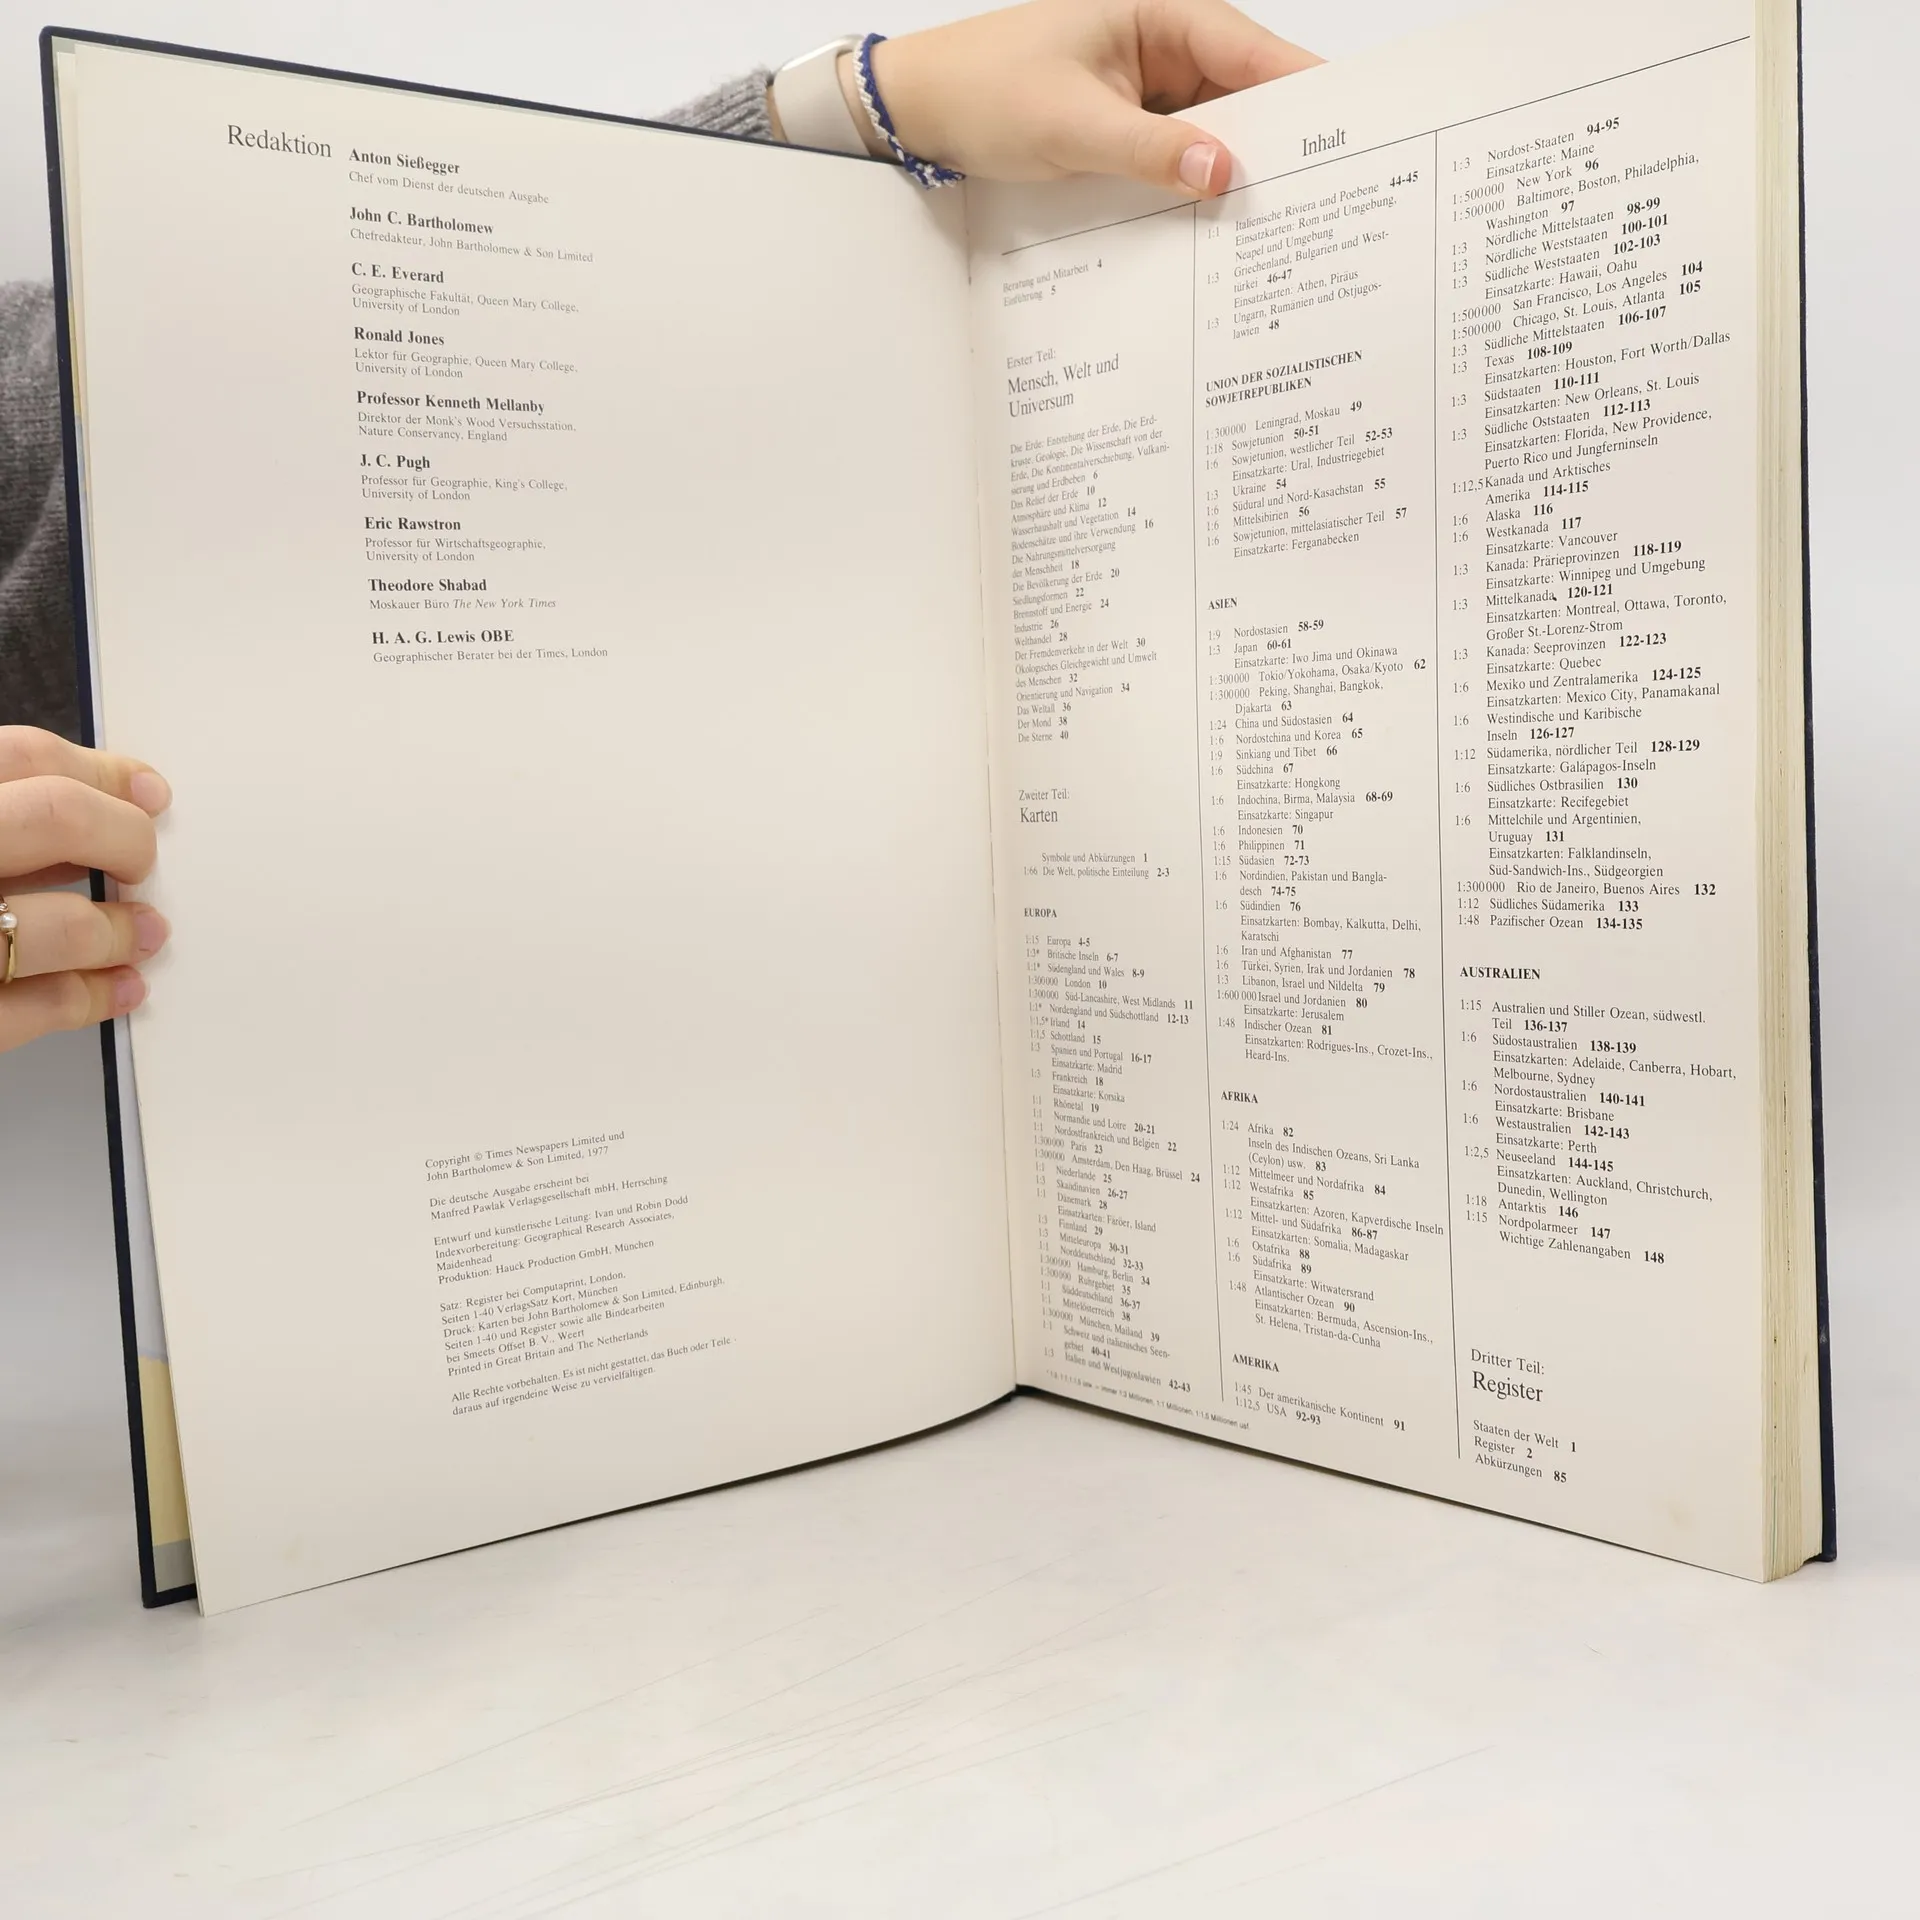 Redaktion
Anton Sießegger
Chef vom Dienst der deutschen Ausgabe
John C. Bartholomew
Chefredakteur, John Bartholomew & Son Limited
C. E. Everard
Geographische Fakultät, Queen Mary College,
University of London
Ronald Jones
Lektor für Geographie, Queen Mary College,
University of London
Professor Kenneth Mellanby
Direktor der Monk's Wood Versuchsstation,
Nature Conservancy, England
J. C. Pugh
Professor für Geographie, King's College,
University of London
Eric Rawstron
Professor für Wirtschaftsgeographie,
University of London
Theodore Shabad
Moskauer Büro The New York Times
H. A. G. Lewis OBE
Geographischer Berater bei der Times, London
Copyright © Times Newspapers Limited und
John Bartholomew & Son Limited, 1977
Die deutsche Ausgabe erscheint bei
Manfred Pawlak Verlagsgesellschaft mbH, Herrsching
Entwurf und künstlerische Leitung: Ivan und Robin Dodd
Indexvorbereitung: Geographical Research Associates,
Maidenhead
Produktion: Hauck Production GmbH, München
Satz: Register bei Computaprint, London,
Seiten 1-40 VerlagsSatz Kort, München
Druck: Karten bei John Bartholomew & Son Limited, Edinburgh,
Seiten 1-40 und Register sowie alle Bindearbeiten
bei Smeets Offset B. V., Weert
Printed in Great Britain and The Netherlands
Alle Rechte vorbehalten. Es ist nicht gestattet, das Buch oder Teile
daraus auf irgendeine Weise zu vervielfältigen.
Inhalt
Beratung und Mitarbeit 4
Einführung 5
Erster Teil:
Mensch, Welt und
Universum
Die Erde: Entstehung der Erde, Die Erd-
kruste, Geologie, Die Wissenschaft von der
Erde, Die Kontinentalverschiebung, Vulkani-
sierung und Erdbeben 6
Das Relief der Erde 10
Atmosphäre und Klima 12
Wasserhaushalt und Vegetation 14
Bodenschätze und ihre Verwendung 16
Die Nahrungsmittelversorgung
der Menschheit 18
Die Bevölkerung der Erde 20
Siedlungsformen 22
Brennstoff und Energie 24
Industrie 26
Welthandel 28
Der Fremdenverkehr in der Welt 30
Ökologisches Gleichgewicht und Umwelt
des Menschen 32
Orientierung und Navigation 34
Das Weltall 36
Der Mond 38
Die Sterne 40
Zweiter Teil:
Karten
Symbole und Abkürzungen 1
1:66 Die Welt, politische Einteilung 2-3
EUROPA
1:15 Europa 4-5
1:3* Britische Inseln 6-7
1:1* Südengland und Wales 8-9
1:300000 London 10
1:300000 Süd-Lancashire, West Midlands 11
1:1* Nordengland und Südschottland 12-13
1:1,5* Irland 14
1:1,5 Schottland 15
1:3 Spanien und Portugal 16-17
Einsatzkarte: Madrid
1:3 Frankreich 18
Einsatzkarte: Korsika
1:1 Rhônetal 19
1:1 Normandie und Loire 20-21
1:1 Nordostfrankreich und Belgien 22
1:300000 Paris 23
1:300000 Amsterdam, Den Haag, Brüssel 24
1:1 Niederlande 25
1:3 Skandinavien 26-27
1:1 Dänemark 28
Einsatzkarten: Färöer, Island
1:3 Finnland 29
1:3 Mitteleuropa 30-31
1:1 Norddeutschland 32-33
1:300000 Hamburg, Berlin 34
1:300000 Ruhrgebiet 35
1:1 Süddeutschland 36-37
1:1 Mittelösterreich 38
1:300000 München, Mailand 39
1:1 Schweiz und italienisches Seen-
gebiet 40-41
1:3 Italien und Westjugoslawien 42-43
1:1 Italienische Riviera und Poebene 44-45
Einsatzkarten: Rom und Umgebung,
Neapel und Umgebung
1:3 Griechenland, Bulgarien und West-
türkei 46-47
Einsatzkarten: Athen, Piräus
1:3 Ungarn, Rumänien und Ostjugos-
lawien 48
UNION DER SOZIALISTISCHEN
SOWJETREPUBLIKEN
1:300000 Leningrad, Moskau 49
1:18 Sowjetunion 50-51
1:6 Sowjetunion, westlicher Teil 52-53
Einsatzkarte: Ural, Industriegebiet
1:3 Ukraine 54
1:6 Südural und Nord-Kasachstan 55
1:6 Mittelsibirien 56
1:6 Sowjetunion, mittelasiatischer Teil 57
Einsatzkarte: Ferganabecken
ASIEN
1:9 Nordostasien 58-59
1:3 Japan 60-61
Einsatzkarte: Iwo Jima und Okinawa
1:300000 Tokio/Yokohama, Osaka/Kyoto 62
1:300000 Peking, Shanghai, Bangkok,
Djakarta 63
1:24 China und Südostasien 64
1:6 Nordostchina und Korea 65
1:9 Sinkiang und Tibet 66
1:6 Südchina 67
Einsatzkarte: Hongkong
1:6 Indochina, Birma, Malaysia 68-69
Einsatzkarte: Singapur
1:6 Indonesien 70
1:6 Philippinen 71
1:15 Südasien 72-73
1:6 Nordindien, Pakistan und Bangla-
desch 74-75
1:6 Südindien 76
Einsatzkarten: Bombay, Kalkutta, Delhi,
Karatschi
1:6 Iran und Afghanistan 77
1:6 Türkei, Syrien, Irak und Jordanien 78
1:3 Libanon, Israel und Nildelta 79
1:600 000 Israel und Jordanien 80
Einsatzkarte: Jerusalem
1:48 Indischer Ozean 81
Einsatzkarten: Rodrigues-Ins., Crozet-Ins.,
Heard-Ins.
AFRIKA
1:24 Afrika 82
Inseln des Indischen Ozeans, Sri Lanka
(Ceylon) usw. 83
1:12 Mittelmeer und Nordafrika 84
1:12 Westafrika 85
Einsatzkarten: Azoren, Kapverdische Inseln
1:12 Mittel- und Südafrika 86-87
Einsatzkarten: Somalia, Madagaskar
1:6 Ostafrika 88
1:6 Südafrika 89
Einsatzkarte: Witwatersrand
1:48 Atlantischer Ozean 90
Einsatzkarten: Bermuda, Ascension-Ins.,
St. Helena, Tristan-da-Cunha
AMERIKA
1:45 Der amerikanische Kontinent 91
1:12,5 USA 92-93
1:3 Nordost-Staaten 94-95
Einsatzkarte: Maine
1:500000 New York 96
1:500000 Baltimore, Boston, Philadelphia,
Washington 97
1:3 Nördliche Mittelstaaten 98-99
1:3 Nördliche Weststaaten 100-101
1:3 Südliche Weststaaten 102-103
Einsatzkarte: Hawaii, Oahu
1:500000 San Francisco, Los Angeles 104
1:500000 Chicago, St. Louis, Atlanta 105
1:3 Südliche Mittelstaaten 106-107
1:3 Texas 108-109
Einsatzkarten: Houston, Fort Worth/Dallas
1:3 Südstaaten 110-111
Einsatzkarten: New Orleans, St. Louis
1:3 Südliche Oststaaten 112-113
Einsatzkarten: Florida, New Providence,
Puerto Rico und Jungferninseln
1:12,5 Kanada und Arktisches
Amerika 114-115
1:6 Alaska 116
1:6 Westkanada 117
Einsatzkarte: Vancouver
1:3 Kanada: Prärieprovinzen 118-119
Einsatzkarte: Winnipeg und Umgebung
1:3 Mittelkanada 120-121
Einsatzkarten: Montreal, Ottawa, Toronto,
Großer St.-Lorenz-Strom
1:3 Kanada: Seeprovinzen 122-123
Einsatzkarte: Quebec
1:6 Mexiko und Zentralamerika 124-125
Einsatzkarten: Mexico City, Panamakanal
1:6 Westindische und Karibische
Inseln 126-127
1:12 Südamerika, nördlicher Teil 128-129
Einsatzkarte: Galápagos-Inseln
1:6 Südliches Ostbrasilien 130
Einsatzkarte: Recifegebiet
1:6 Mittelchile und Argentinien,
Uruguay 131
Einsatzkarten: Falklandinseln,
Süd-Sandwich-Ins., Südgeorgien
1:300000 Rio de Janeiro, Buenos Aires 132
1:12 Südliches Südamerika 133
1:48 Pazifischer Ozean 134-135
AUSTRALIEN
1:15 Australien und Stiller Ozean, südwestl.
Teil 136-137
1:6 Südostaustralien 138-139
Einsatzkarten: Adelaide, Canberra, Hobart,
Melbourne, Sydney
1:6 Nordostaustralien 140-141
Einsatzkarte: Brisbane
1:6 Westaustralien 142-143
Einsatzkarte: Perth
1:2,5 Neuseeland 144-145
Einsatzkarten: Auckland, Christchurch,
Dunedin, Wellington
1:18 Antarktis 146
1:15 Nordpolarmeer 147
Wichtige Zahlenangaben 148
Dritter Teil:
Register
Staaten der Welt 1
Register 2
Abkürzungen 85